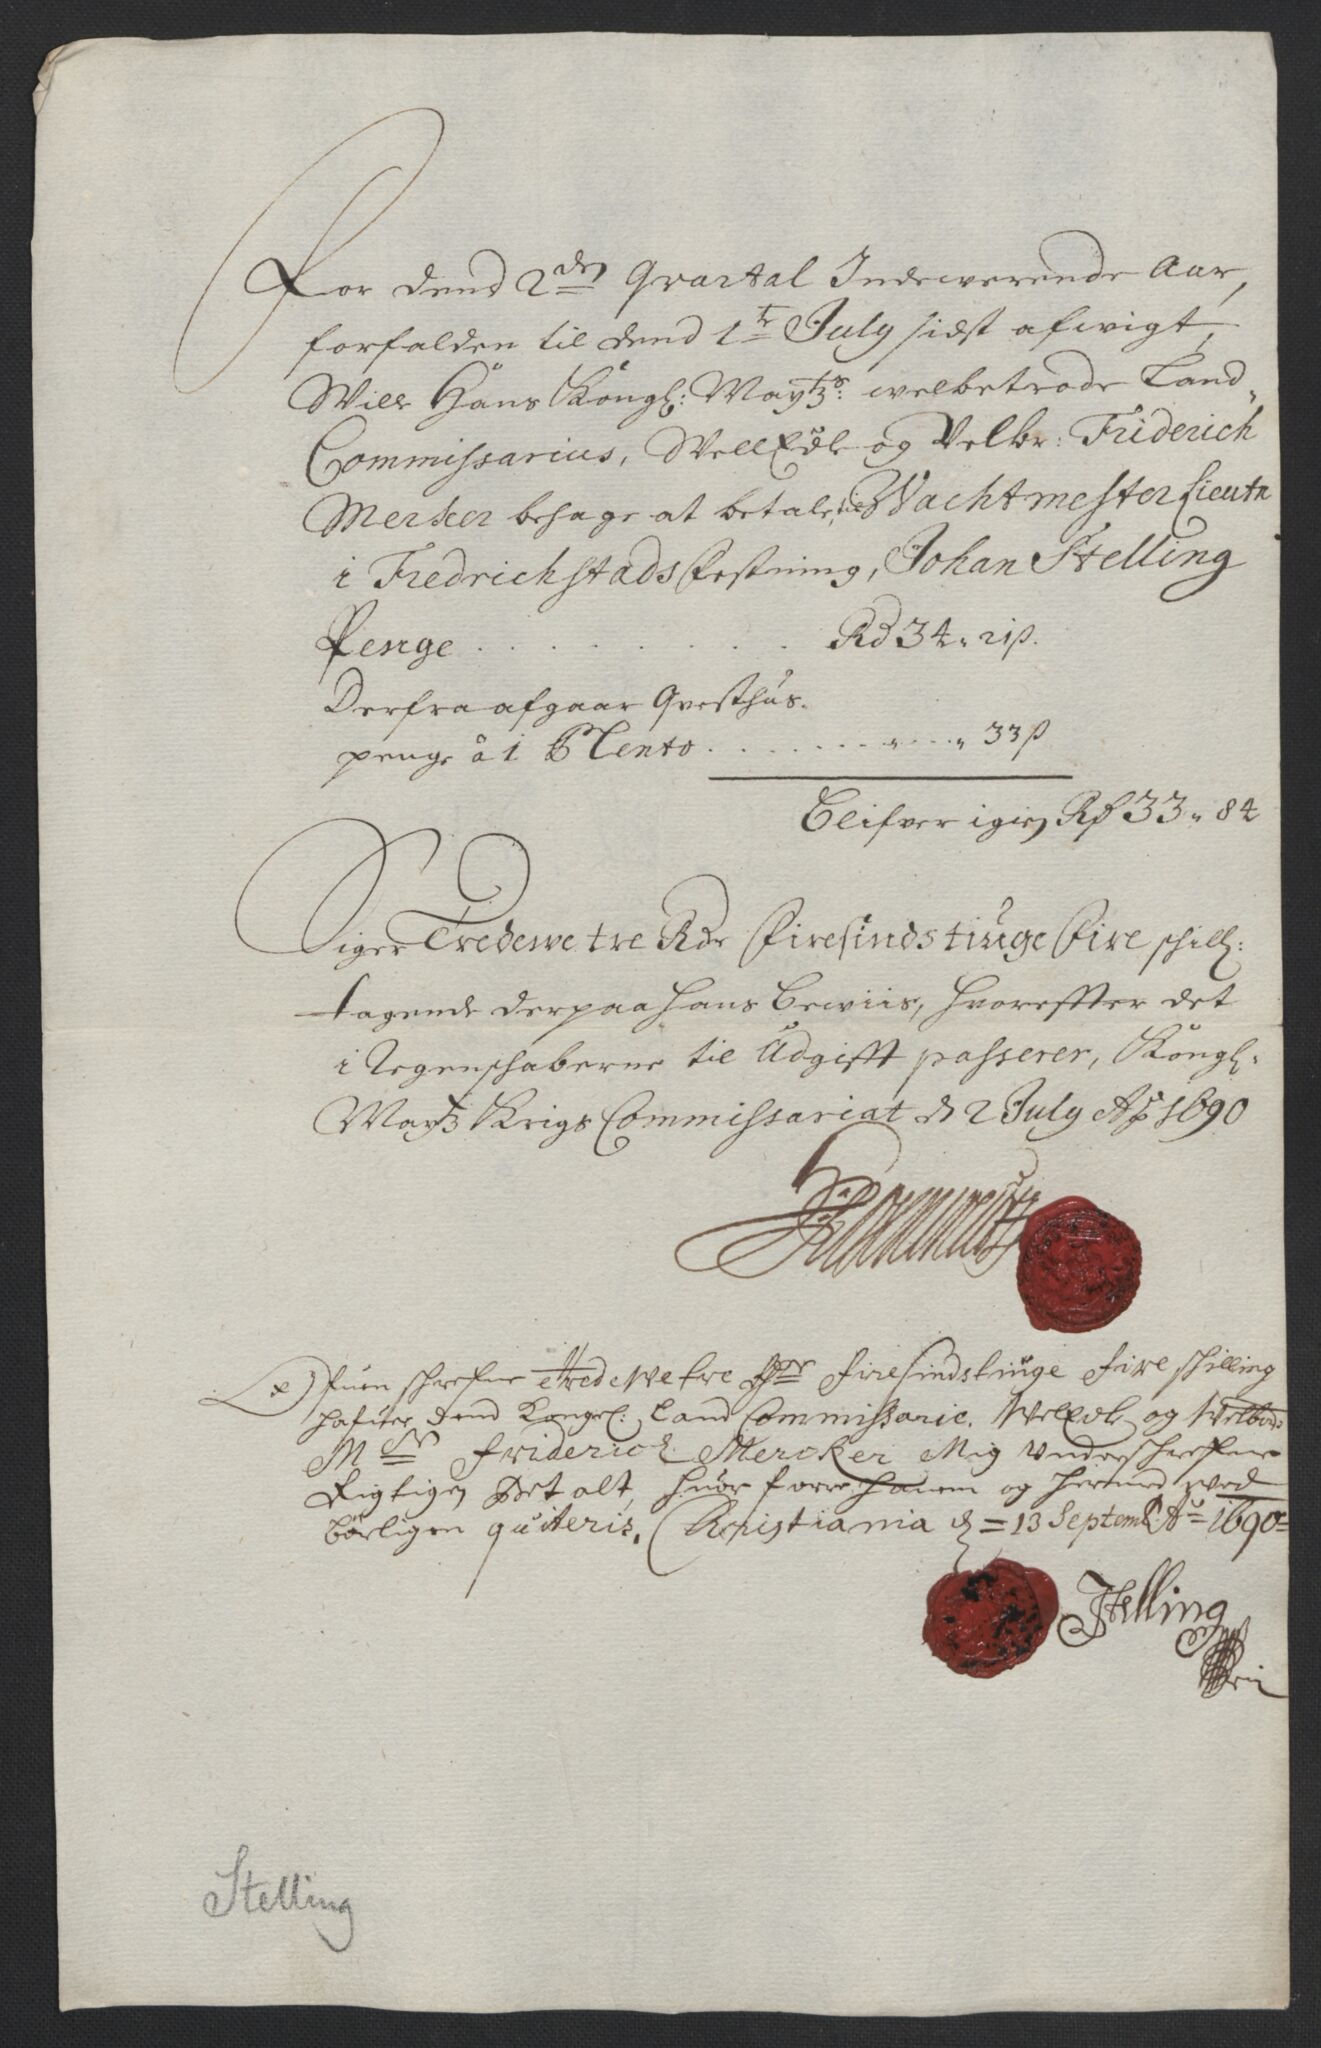 For dend 2den Qvartal Indewerende Aar,
forfalden til dend 1te July sidst afvigt,
Wille Hans Kongl: Maytz: welbetrode Land
Commissarius, WellEdle og Velbr: Friderich
Merker behage at betale til Wachtmester Lieutn
i Fredrichstads Festning, Johan Stelling
Penge . . . . . . . . . . Rd 34 „ 21 ß.
Derfra afgaar Qvesthus-
penge à 1 P Cento . . . . . . „ . . . „ 33 ß
Blifver igien Rd 33 „ 84
Siger Tredewe tre Rdr Firesindstiuge Fire schill:
tagende derpaa hans bewiis, hvoreffter det
i Regenschaberne til Udgifft passerer, Kongl:
Maytz Krigs Commissariat d 2 July Ao 1690
schrefne Tredewe tre Firesindstiuge Fire schilling
hafuer dend Kongel: Land Commissarie, WelEdle og Welbrd:
Mr Friderich Mercker Mig Underschrefne
Rigtigen Betalt, huor forre hanem og hermed wed
børligen quiteris, Christiania d = 13 Septemb Ao 1690 =
Stelling
Stelling